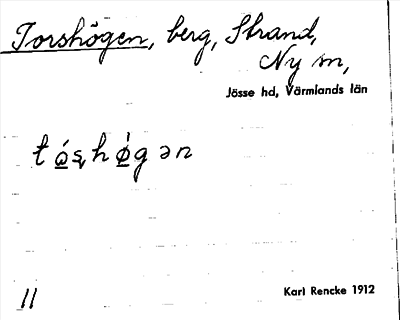 Torshögen, berg, Strand,
Ny sn,
Jösse hd, Värmlands län
11
Karl Rencke 1912